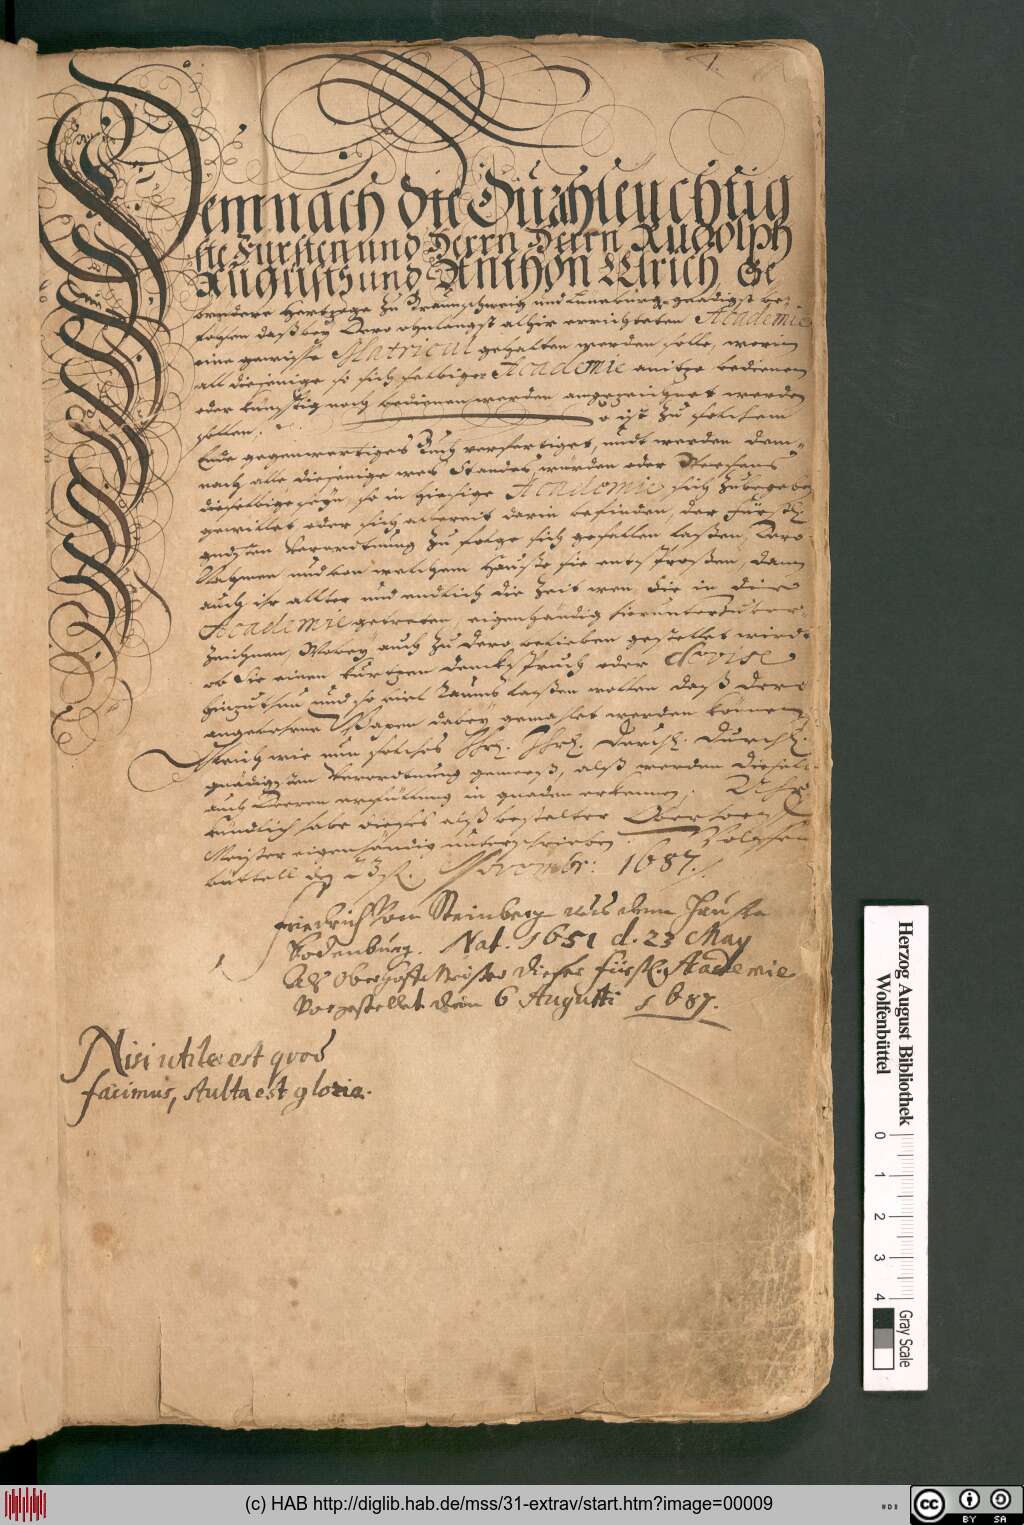 1.
Demnach die Durchleuchtig
ste Fürsten und Herrn Herrn Rudolph
Augusts und Anthon Ulrich, Ge
brüdere Hertzoge zu Braunschweig und Lüneburg gnädigst be-
fohlen daß bey Dero ohnlängst alhir errichteten Academie
eine gewisse Matricul gehalten werden solle, worin
all diejenige so sich selbiger Academie anitzo bedienen
oder künfftig noch bedienen werden angezeichnet werden
sollen, so ist zu solchem
Ende gegenwertiges Buch verfertiget, undt werden dem-
nach alle diejenige wes Standes, würden oder
dieselbige seyn, so in hiesige Academie sich zubegeben
gewillet oder sich allereit darin befinden, der Fürstl.
gndsten Verordnung zu folge sich gefallen laßen, Dero
Nahmen und von welchem Hause sie entsproßen, dann
auch ihr allter und endlich die Zeit wen sie in diese
Academie getreten, eigenhändig hierunter zu ver-
zeichnen, Wobey auch zu dero belieben gestellet wirdt
ob Sie einen kurtzen denckspruch oder devise
hinzuthun und so viel Raums laßen wollen daß dero
angebohrne Wapen dabey gemahlet werden können
Gleich wie nun solches Ihr. Ihr. Durchl. Durchl.
gnädigsten Verordnung gemeeß, alß werden dieselb
auch deren erfüllung in gnaden erkennen. Uhr
kündlich habe dieses alß bestalter Oberhoff
Meister eigenhändig unterschrieben. Wolffen
büttell den 23st. Novembr: 1687.
Friedrich Von Steinberg aus dem Hause
Bodenburg. Nat. 1651 d. 23 May
Als Oberhoffmeister dieser fürstl. Academie
Vorgestellet den 6 Augusti 1687.
Nisi utile est quod
facimus, stulta est gloria.
Herzog August Bibliothek
Wolfenbüttel
0 1 2 3 4
Gray Scale
(c) HAB http://diglib.hab.de/mss/31-extrav/start.htm?image=00009
cc BY SA